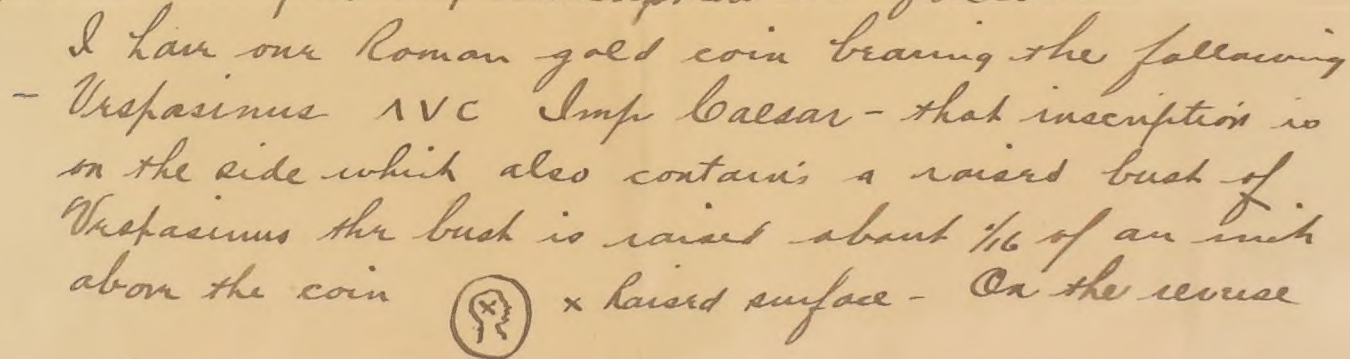 I have one Roman gold coin bearing the following
- Vespasinus ΛVC Imp Caesar - that inscription is
on the side which also contains a raised bust of
Vespasinus the bust is raised about 1/16 of an inch
above the coin x Raised surface - On the reverse